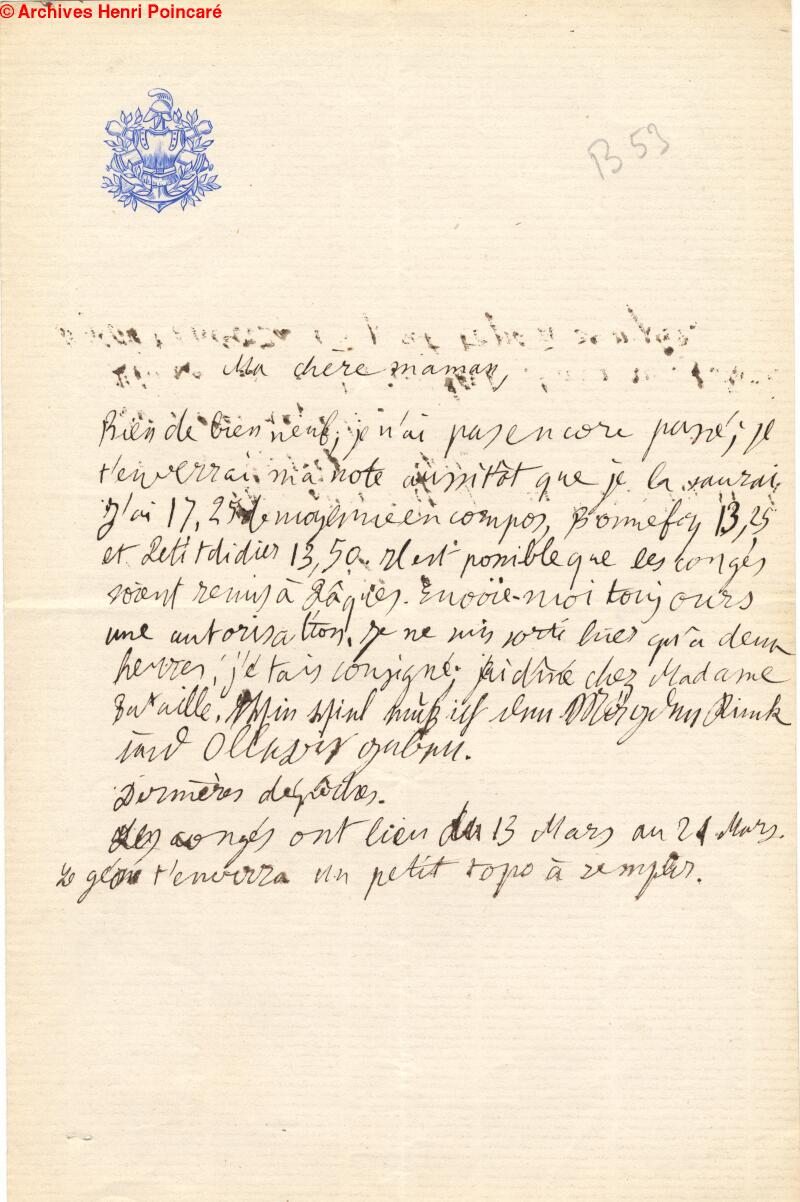 © Archives Henri Poincaré
B 53
Ma chère maman,
Rien de bien neuf, je n'ai pas encore passé; je
t'enverrai ma note aussitôt que je la saurai
J'ai 17,25 de moyenne en compos, Bonnefoy 13,25
et Petitdidier 13,50. Il est possible que les congés
soient remis à Pâques. Envoie-moi toujours
une autorisation. Je ne suis sorti hier qu'à deux
heures; j'étais consigné; j'ai dîné chez Madame
Bataille. muß ich
Dernières dépêches.
Les congés ont lieu du 13 Mars au 21 Mars.
Le géné t'enverra un petit topo à remplir.